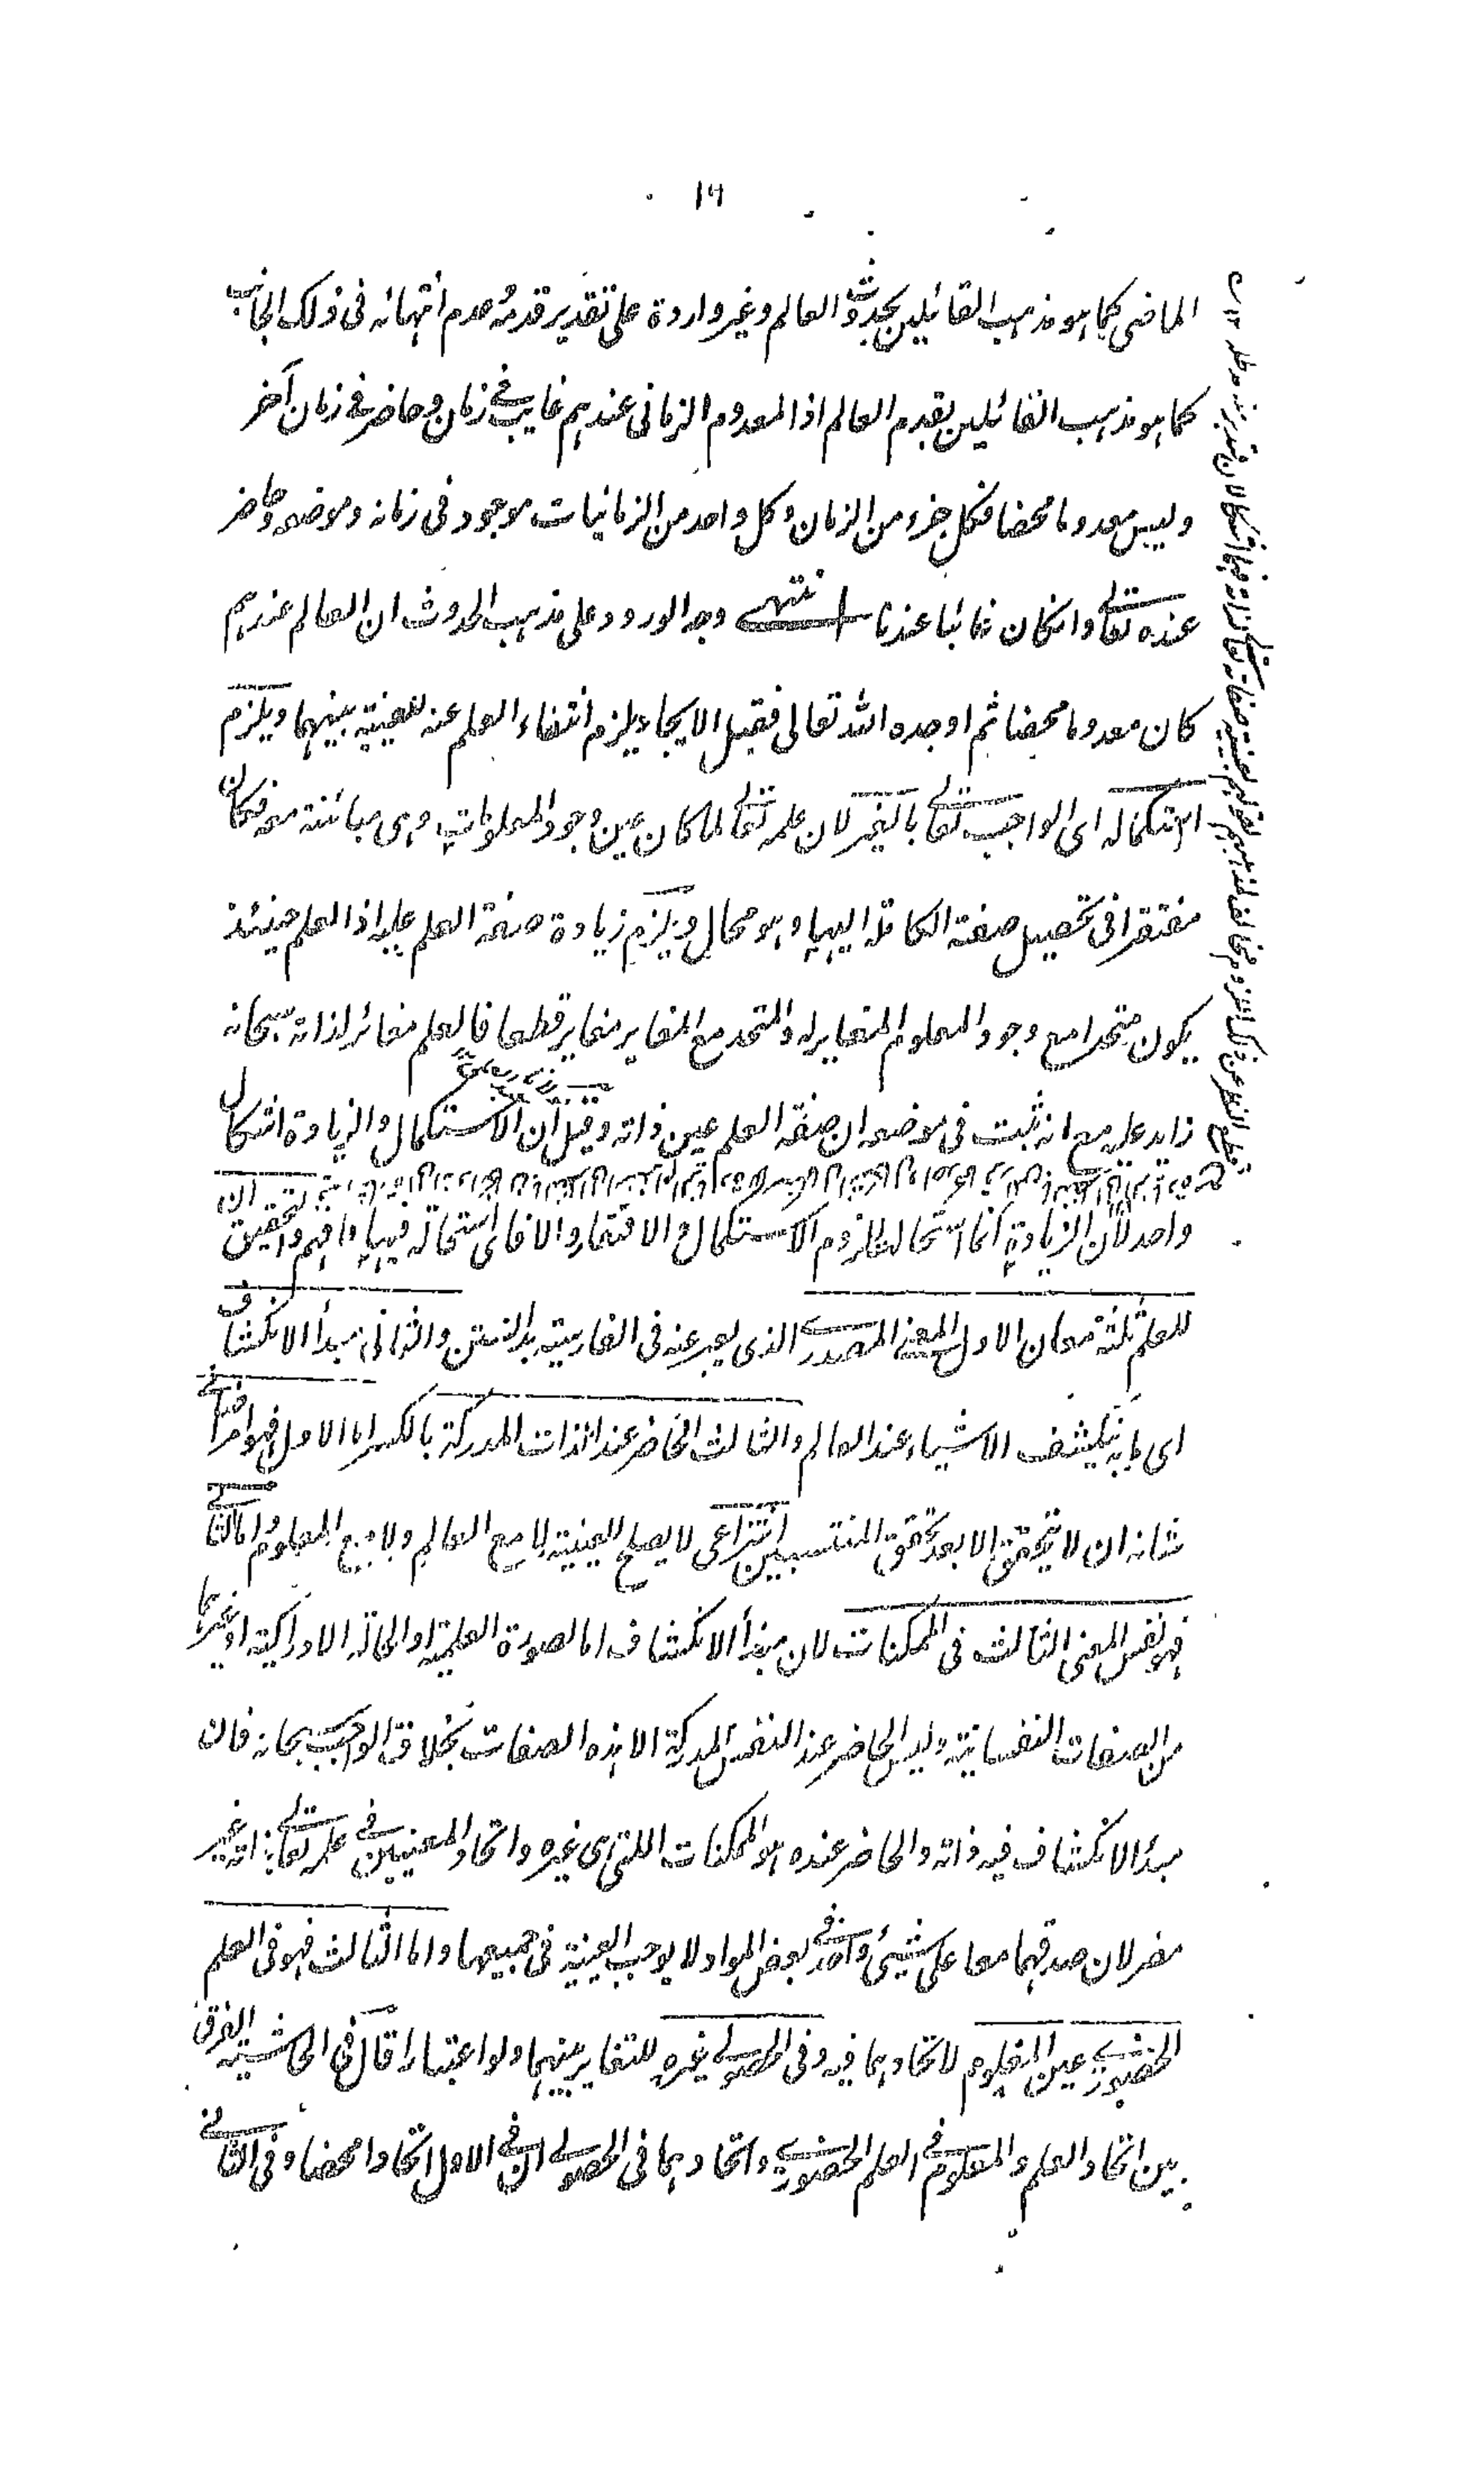 ١٦
الماضى كما هو مذهب القائلين بحدوث العالم وغير واردة على تقدير قدمه وعدم انتهائه فى ذلك الجانب
كما هو مذهب القائلين بقدم العالم اذ المعدوم الزمانى عندهم غايب فى زمان وحاضر فى زمان آخر
وليس معدوما محضا فكل جزء من الزمان وكل واحد من الزمانيات موجود فى زمانه وموضعه وحاضر
عنده تعالى وانكان غائبا عندنا انتهى وجه الورود على مذهب الحدوث ان العالم عندهم
كان معدوما محضا ثم اوجده الله تعالى فقبل الايجاد يلزم انتفاء العلم عنه للعينية بينهما ويلزم
استكماله اى الواجب تعالى بالغير لان علمه تعالى لما كان عين وجود المعلومات وهى مبائنة منه فكان
مفتقرا فى تحصيل صفته الكاملة اليها وهو محال ويلزم زيادة صفة العلم عليه اذ العلم حينئذ
يكون متحدا مع وجود المعلوم المغاير له والمتحد مع المغاير مغاير قطعا فالعلم مغائر لذاته سبحانه
زايد عليه مع انه ثبت فى موضعه ان صفة العلم عين ذاته وقيل ان الاستكمال والزيادة اشكال
واحد لان الزيادة انما استحالتها للزوم الاستكمال والافتقار والا فاى استحالة فيها فافهم والتحقيق ان
للعلم ثلثة معان الاول المعنى المصدرى الذى يعبر عنه فى الفارسية بدانستن والثانى مبدأ الانكشاف
اى ما به ينكشف الاشياء عند العالم والثالث الحاضر عند الذات المدركة بالكسر اما الاول فهو امر اضافى
شانه ان لا يتحقق الا بعد تحقق المنتسبين انتزاعى لا يصلح للعينية لا مع العالم ولا مع المعلوم واما الثانى
فهو نفس المعنى الثالث فى الممكنات لان مبدأ الانكشاف اما الصورة العلمية او الحالة الادراكية او غيرهما
من الصفات النفسانية وليس الحاضر عند النفس المدركة الا هذه الصفات بخلاف الواجب سبحانه فان
مبدأ الانكشاف فيه ذاته والحاضر عنده هو الممكنات اللتى هى غيره واتحاد المعنيين فى علمه تعالى بذاته غير
مضر لان صدقهما معا على شيئ واحد فى بعض المواد لا يوجب العينية فى جميعها واما الثالث فهو فى العلم
الحضورى عين المعلوم لاتحادهما فيه وفى الحصولى غيره للتغاير بينهما ولو اعتبارا قال فى الحاشية الفرق
بين اتحاد العلم والمعلوم فى العلم الحضورى واتحادهما فى الحصولى ان فى الاول اتحادا محضا وفى الثانى